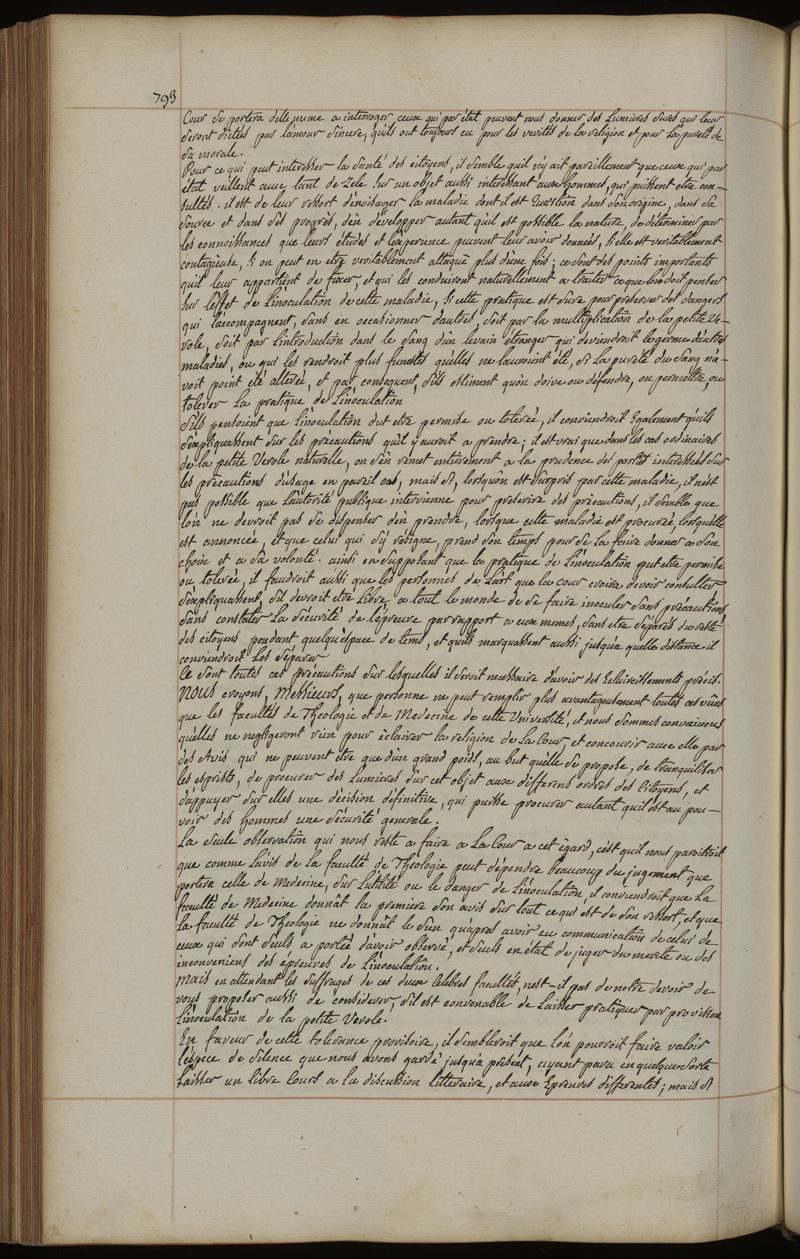 798
Cour se portera d'elle meme a interroger ceux qui par état peuvent nous donner des Lumieres sures qui leur
seront dictées par l'amour sincere, qu'ils ont toujours eu pour les verités de la religion et pour la pureté de
sa morale.
Pour ce qui peut interesser la santé des citoyens, il semble qu'il n'y ait pareillement que ceux qui par
état veillent avec tant de zele sur un objet aussi interessant aux hommes, qui puissent etre con-
sultés. il est de leur ressort d'envisager la maladie dont il est Question dans son origine, dans sa
source et dans ses progrès, d'en developper autant qu'il est possible la nature, de déterminer par
les connoissances que leurs études et l'experience peuvent leur avoir données, si elle est veritablement
contagieuse, si on peut en etre veritablement attaqué plus d'une fois; ce sont des points importants
qu'il leur appartient de fixer, et qui les conduiront naturellement a traiter ce que l'on doit penser
sur l'effet de l'inoculation de cette maladie, si cette pratique est sure pour preserver des dangers
qui l'accompagnent, sans en occasionner d'autres, soit par la multiplication de la petite Ve-
role, soit par l'introduction dans le sang d'un levain étranger qui deviendroit le germe d'autres
maladies, ou qui les rendroit plus funestes qu'elles ne l'auroient été, si la pureté du sang n'a-
voit point été alterée, et par consequent, s'ils estiment qu'on doive ou défendre, ou permettre, ou
tolerer la pratique de l'inoculation
S'ils pensoient que l'inoculation dut etre permise ou tolerée, il conviendroit Egalement qu'ils
s'expliquassent sur les précautions qu'il y auroit a prendre; il est vrai que dans les cas ordinaires
de la petite Verole naturelle, on s'en remet entierement a la prudence des parties interessées sur
les précautions d'usage en pareil cas, mais si, lorsqu'on est surpris par cette maladie, il n'est
pas possible que l'autorité publique intervienne pour prescrire des précautions, il semble que
l'on ne devroit pas se dispenser d'en prendre, lorsque cette maladie est procurée, lorsqu'elle
est annoncée, et que celui qui s'y résigne, prend son temps pour se la faire donner a son
choix et a sa volonté. ainsi en supposant que la pratique de l'inoculation put etre permise
ou tolerée, il faudroit aussi que les personnes de l'art que la cour croira devoir consulter
s'expliquassent, s'il devroit etre Libre a tout le monde de se faire inoculer sans précautions
sans constater la sécurité de l'épreuve par rapport a eux memes, sans etre séparés du reste
des citoyens pendant quelqu'espace de tems, et qu'ils marquassent aussi jusqu'a quelle distance il
conviendroit les séparer
Ce sont toutes ces précautions sur lesquelles il seroit necessaire d'avoir des Eclaircissements précis.
Nous croyons, Messieurs, que personne ne peut remplir plus avantageusement toutes ces vües
que les facultés de Theologie et de Medecine de cette Université, et nous sommes convaincus
qu'elles ne negligeront rien pour éclairer la religion de la Cour, et concourir avec elle par
des avis qui ne peuvent etre que d'un grand poids, au but qu'elle se propose, de tranquiliser
les esprits, de procurer des Lumieres sur cet objet aux differens ordres des Citoyens, et
d'appuyer sur elles une décision définitive, qui puisse procurer autant qu'il est au pou-
voir des hommes une sécurité generale.
La seule observation qui nous reste a faire a La Cour a cet égard, c'est qu'il nous paroitroit
que comme l'avis de La faculté de Theologie peut dépendre beaucoup du jugement que
portera celle de Medecine, sur l'utilité ou le danger de l'inoculation, il conviendroit que La
faculté de Medecine donnât la premiere son avis sur tout ce qui est de son ressort, et que
La faculté de Theologie ne donnât le sien qu'apres avoir eu communication de celui de
ceux qui sont seuls a portée d'avoir observé, et seuls en état de juger du merite ou des
inconveniens des épreuves de l'inoculation.
Mais en attendant les suffrages de ces deux célèbres facultés, n'est-il pas de notre devoir de
vous proposer aussi de considerer, s'il est convenable de laisser pratiquer par provision
l'inoculation de la petite Verole.
En faveur de cette tolerance provisoire, il sembleroit que l'on pourroit faire valoir
l'espece de silence que nous avons gardé jusqu'a présent, ayant paru en quelque sorte
laisser un libre Cours a la discussion litteraire, et aux Epreuves differentes; mais si